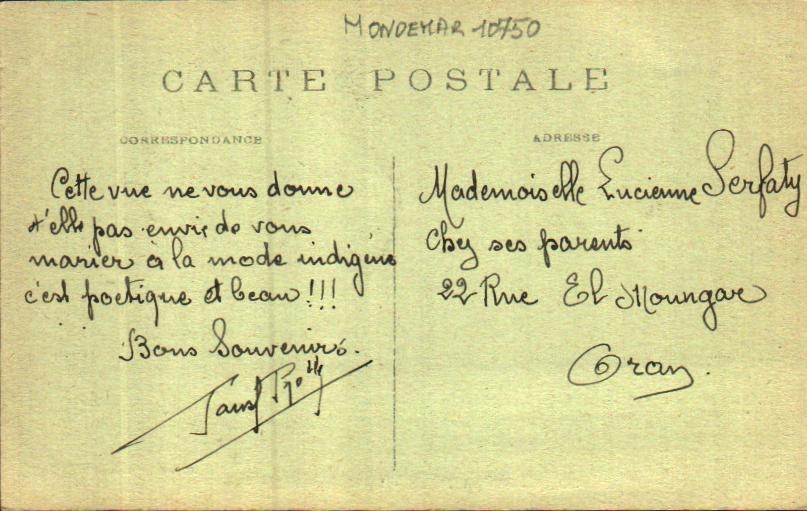 MONDEMAR 10750
CARTE POSTALE
CORRESPONDANCE
ADRESSE
Cette vue ne vous donne
t'elle pas envie de vous
marier à la mode indigène
c'est poetique et beau !!!
Bons Souvenirs.
Mademoiselle Lucienne Serfaty
Chez ses parents
22 Rue El Moungar
Oran.